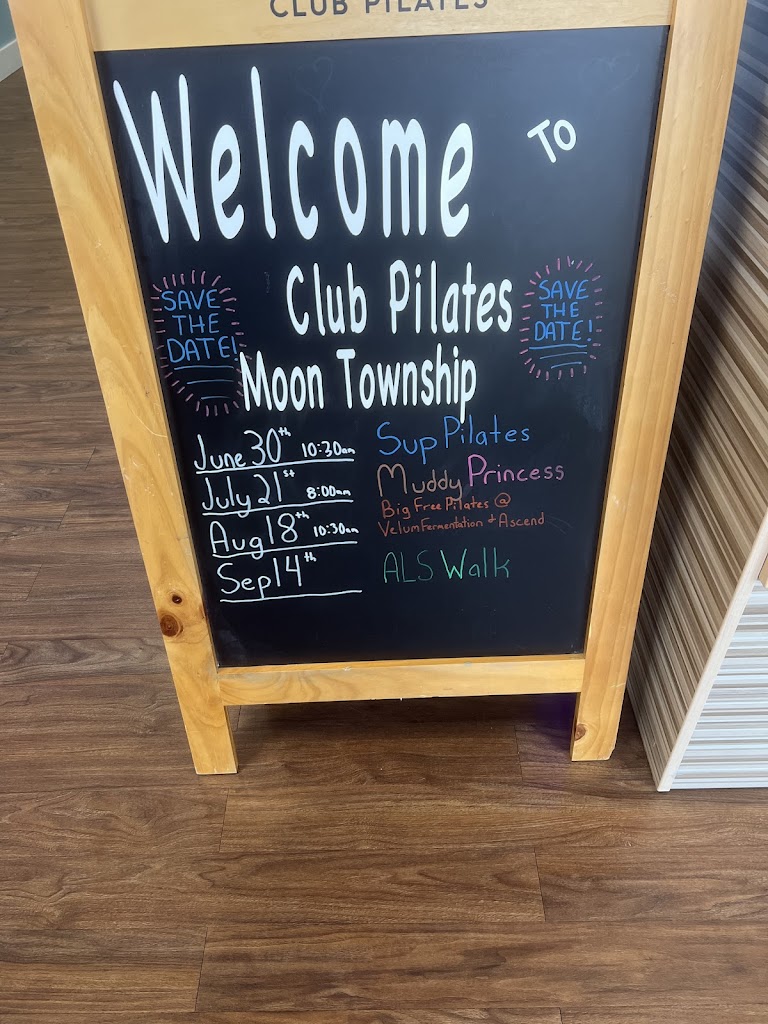 CLUB PILATES
Welcome TO
Club Pilates
Moon Township
SAVE
THE
DATE!
SAVE
THE
DATE!
June 30th 10:30am Sup Pilates
July 21st 8:00am Muddy Princess
Aug 18th 10:30am Big Free Pilates @
Velum Fermentation + Ascend
Sep 14th ALS Walk